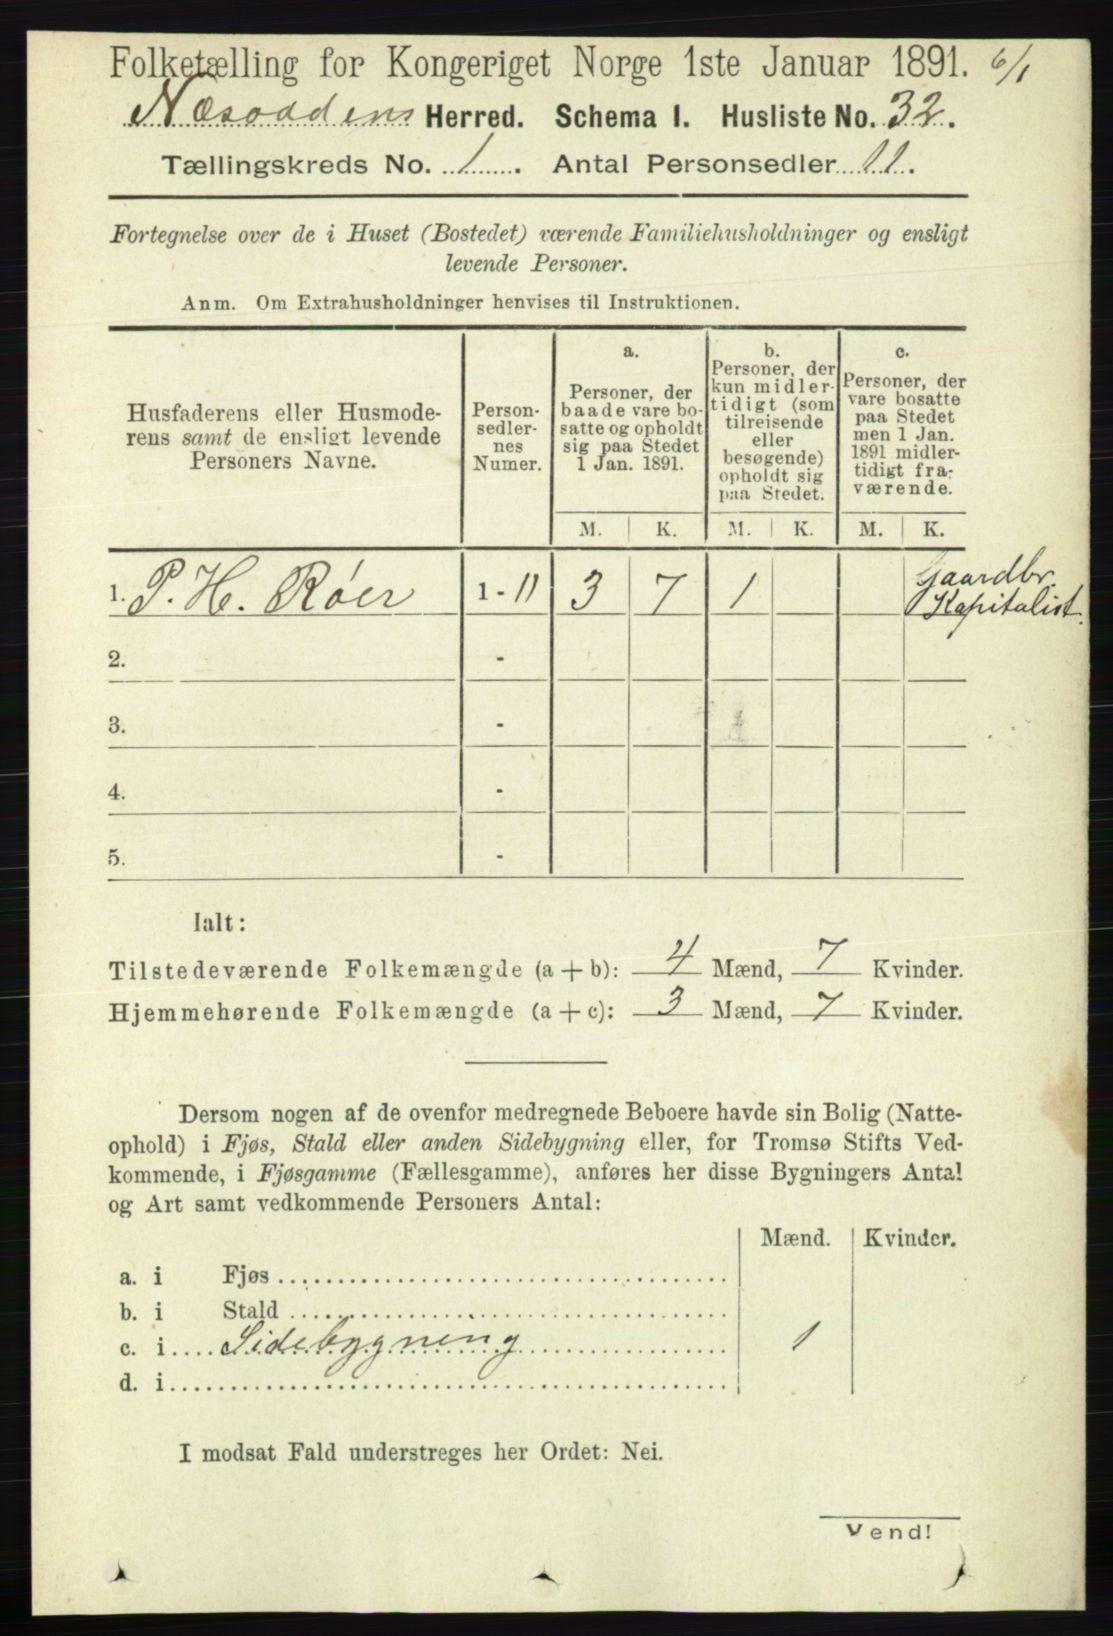 Folketælling for Kongeriget Norge 1ste Januar 1891. 6/1
Næsoddens Herred. Schema I. Husliste No. 32.
Tællingskreds No. 1. Antal Personsedler 11.
Fortegnelse over de i Huset (Bostedet) værende Familiehusholdninger og ensligt
levende Personer.
Anm. Om Extrahusholdninger henvises til Instruktionen.
Husfaderens eller Husmode-
rens samt de ensligt levende
Personers Navne.
Person-
sedler-
nes
Numer.
a.
Personer, der
baade vare bo-
satte og opholdt
sig paa Stedet
1 Jan. 1891.
b.
Personer, der
kun midler-
tidigt (som
tilreisende
eller
besøgende)
opholdt sig
paa Stedet.
c.
Personer, der
vare bosatte
paa Stedet
men 1 Jan.
1891 midler-
tidigt fra-
værende.
M. K. M. K. M. K.
1. P. H. Røer 1 - 11 3 7 1 Gaardbr.
Kapitalist.
2. -
3. -
4. -
5. -
Ialt:
Tilstedeværende Folkemængde (a + b): 4 Mænd, 7 Kvinder.
Hjemmehørende Folkemængde (a + c): 3 Mænd, 7 Kvinder.
Dersom nogen af de ovenfor medregnede Beboere havde sin Bolig (Natte-
ophold) i Fjøs, Stald eller anden Sidebygning eller, for Tromsø Stifts Ved-
kommende, i Fjøsgamme (Fællesgamme), anføres her disse Bygningers Antal
og Art samt vedkommende Personers Antal:
Mænd. Kvinder.
a. i Fjøs
b. i Stald
c. i Sidebygning 1
d. i
I modsat Fald understreges her Ordet: Nei.
Vend!